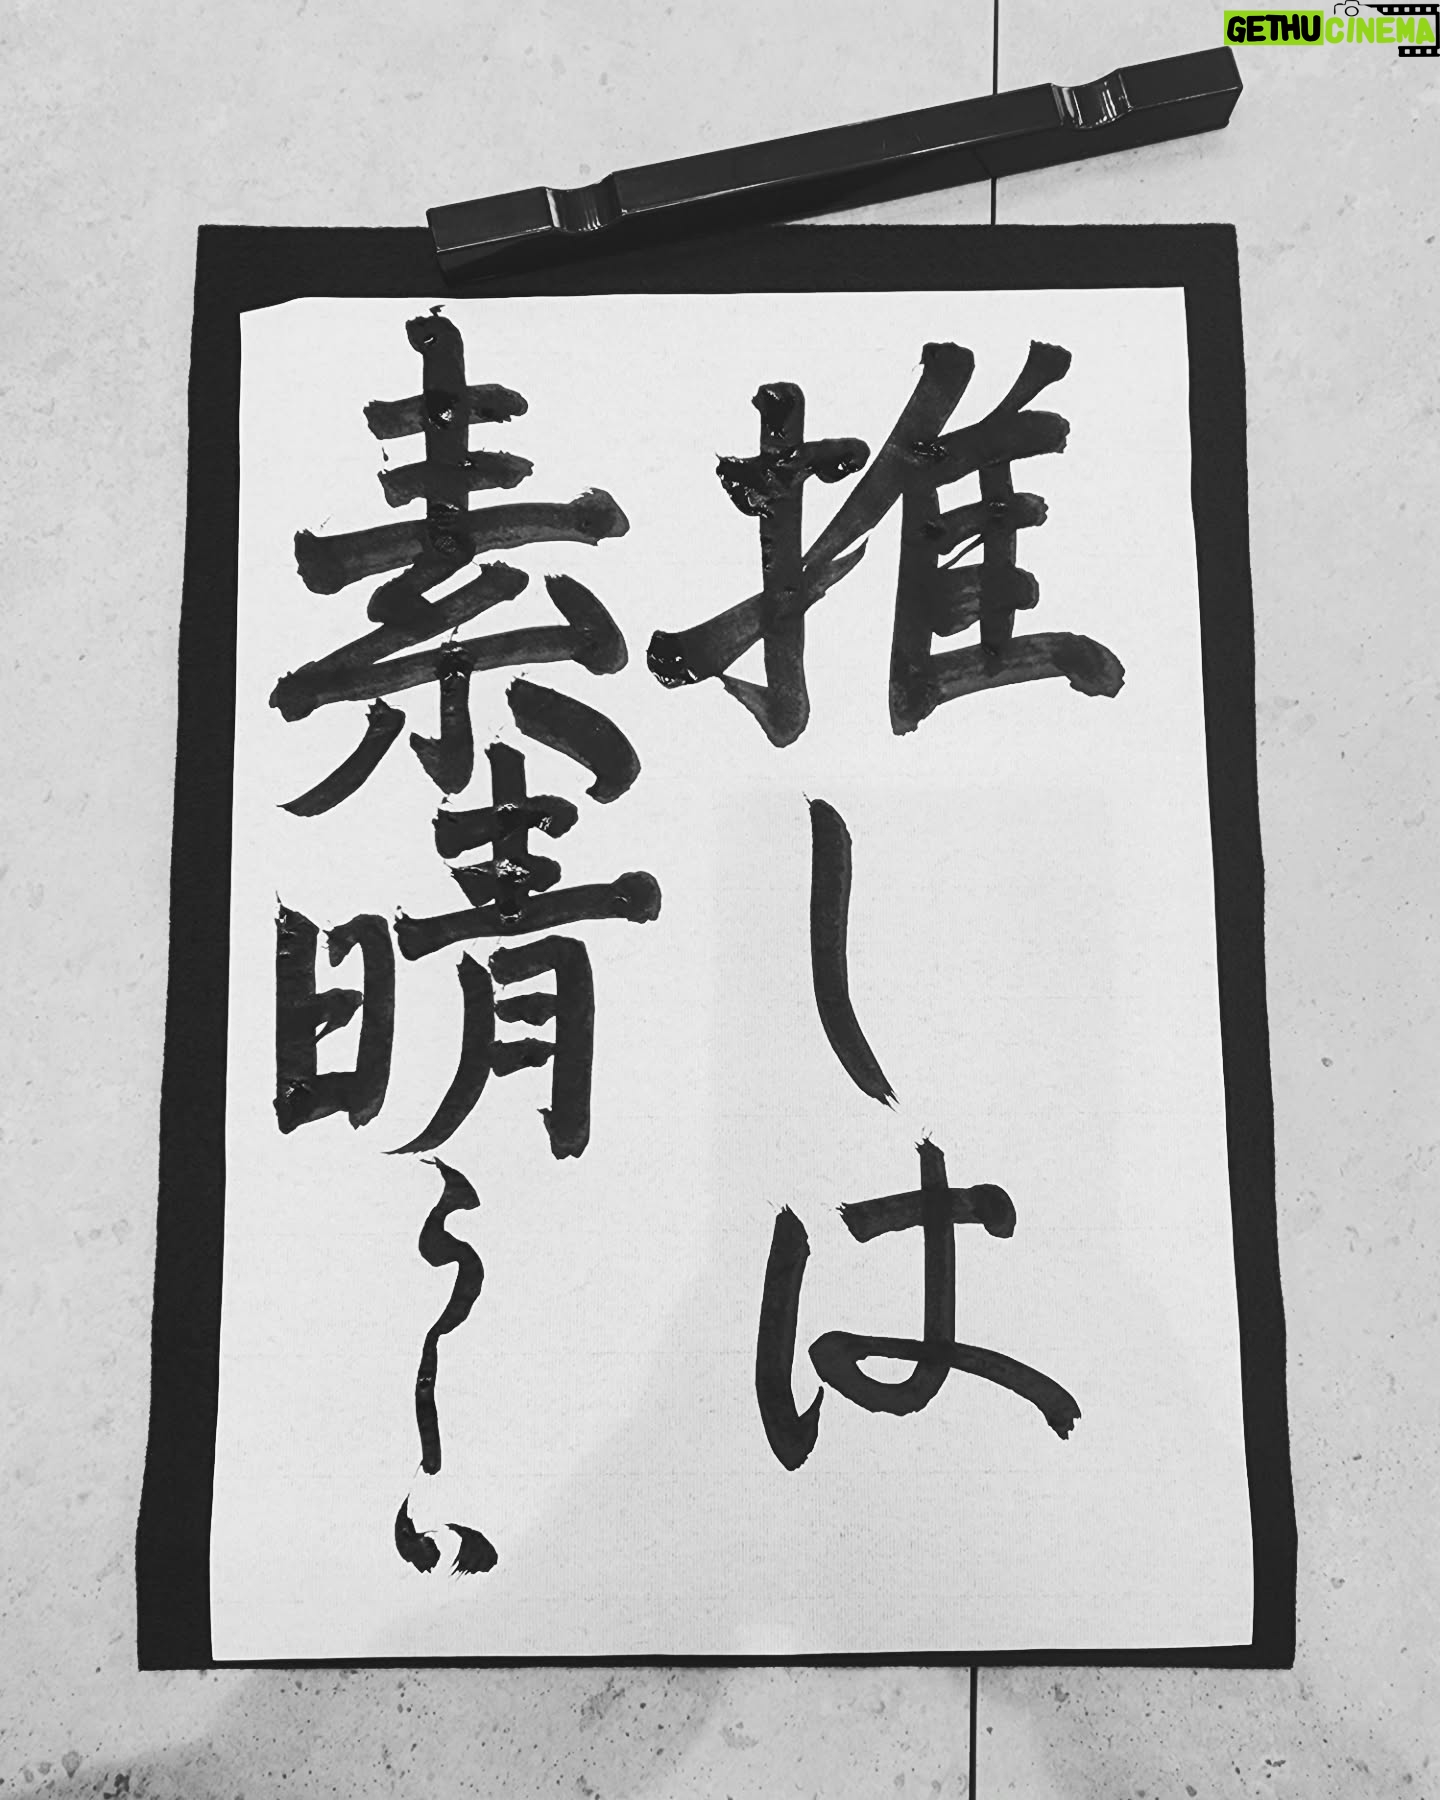 推しは
素晴らしい
GETHUCINEMA